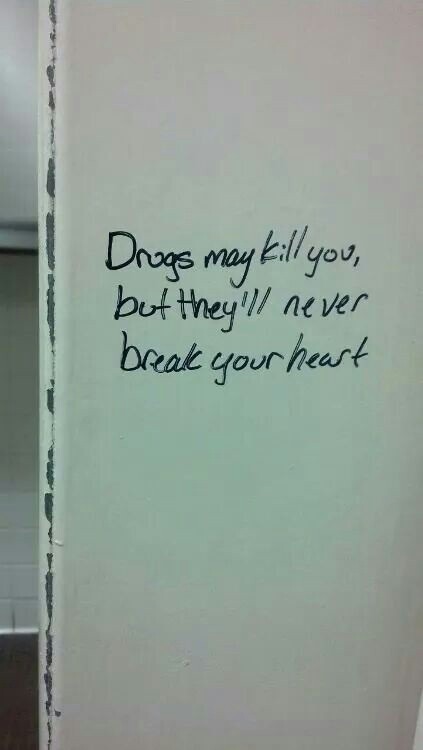 Drugs may kill you,
but they'll never
break your heart